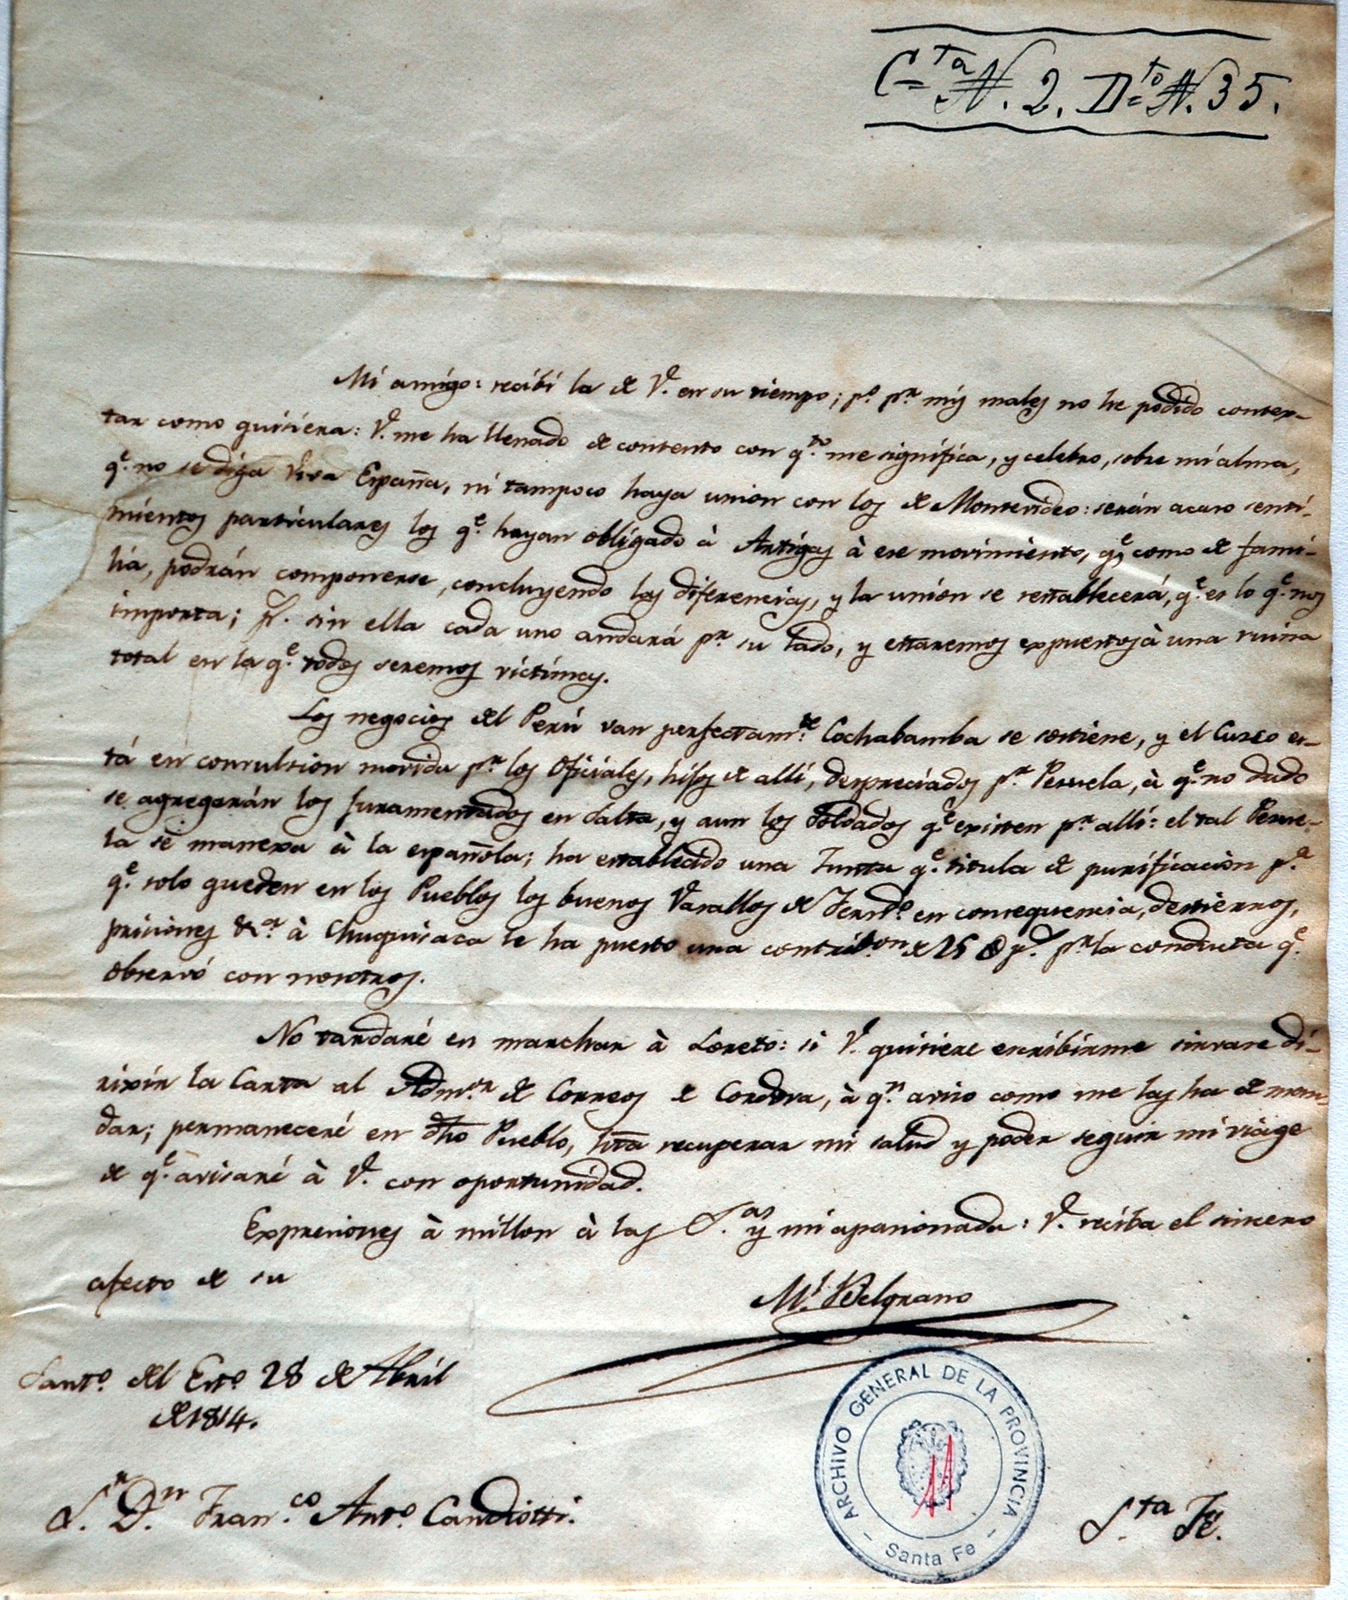 C=ta N. 2. D=to N. 35.
Mi amigo: recibí la de V. en su tiempo; po. pr. mis males no he podido contex-
tar como quisiera: V. me ha llenado de contento con qto. me significa, y celebro, sobre mi alma,
qe. no se diga viva España, ni tampoco haya union con los de Montevideo: serán acaso senti-
mientos particulares los qe. hayan obligado à Artigas à ese movimiento, qe. como de fami-
lia, podrán componerse, concluyendo las diferencias, y la union se restablecerá, qe. es lo qe. nos
importa; ps. sin ella cada uno andará pr. su lado, y estaremos expuestos à una ruina
total en la qe. todos seremos victimas.
Los negocios del Perú van perfectamte. Cochabamba se sostiene, y el Cuzco es-
tá en convulsion movida pr. los Oficiales, hijos de allí, despreciados pr. Pezuela, à qe. no dudo
se agregarán los juramentados en Salta, y aun los Soldados qe. existen pr. allí: el tal Pezue-
la se manexa à la española; ha establecido una Junta qe. titula de purificacion pa.
qe. solo queden en los Pueblos los buenos Vasallos de Ferndo. en consequencia, destierros,
prisiones &a. à Chuquisaca le ha puesto una contribon. de 25 ps. pr. la conducta qe.
observó con nosotros.
No tardaré en marchar à Loreto: si V. quisiere escribirme sirvase di-
rixir la Carta al Admor. de Correos de Cordova, à qn. aviso como me las ha de man-
dar; permaneceré en dho Pueblo, hta recuperar mi salud y poder seguir mi viage
de qe. avisaré à V. con oportunidad.
Expresiones à millon à las S.as y mi apasionada: V. reciba el sincero
afecto de su
Ml. Belgrano
Santo. del Esto. 28 de Abril
de 1814.
S.r D.n Fran.co Anto. Candiotti.
S.ta Fe.
ARCHIVO GENERAL DE LA PROVINCIA
Santa Fe